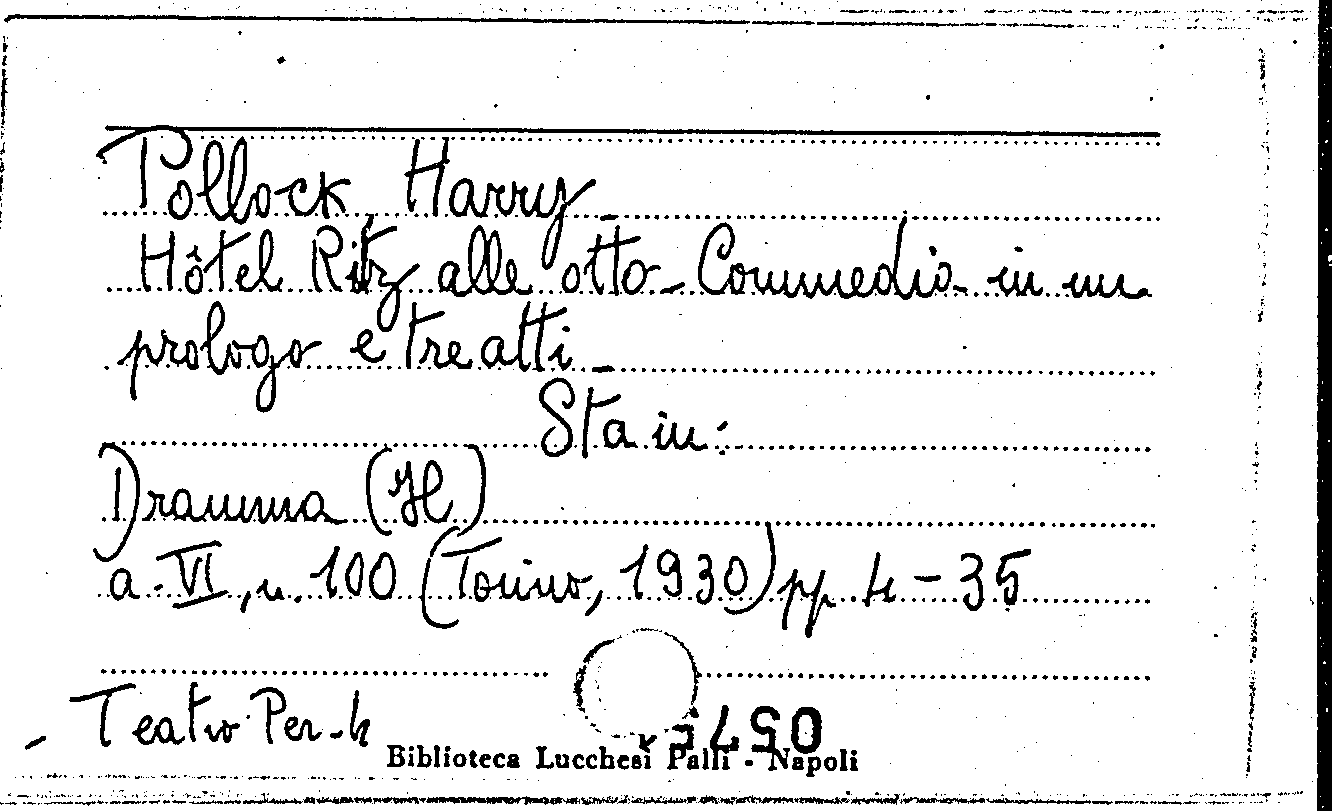 Pollock, Harry -
Hôtel Ritz alle otto - Commedia in un
prologo e tre atti -
Sta in:
Dramma (Il)
a. VI, n. 100 (Torino, 1930) pp. 4-35
Teatro Per-4
Biblioteca Lucchesi Palli - Napoli